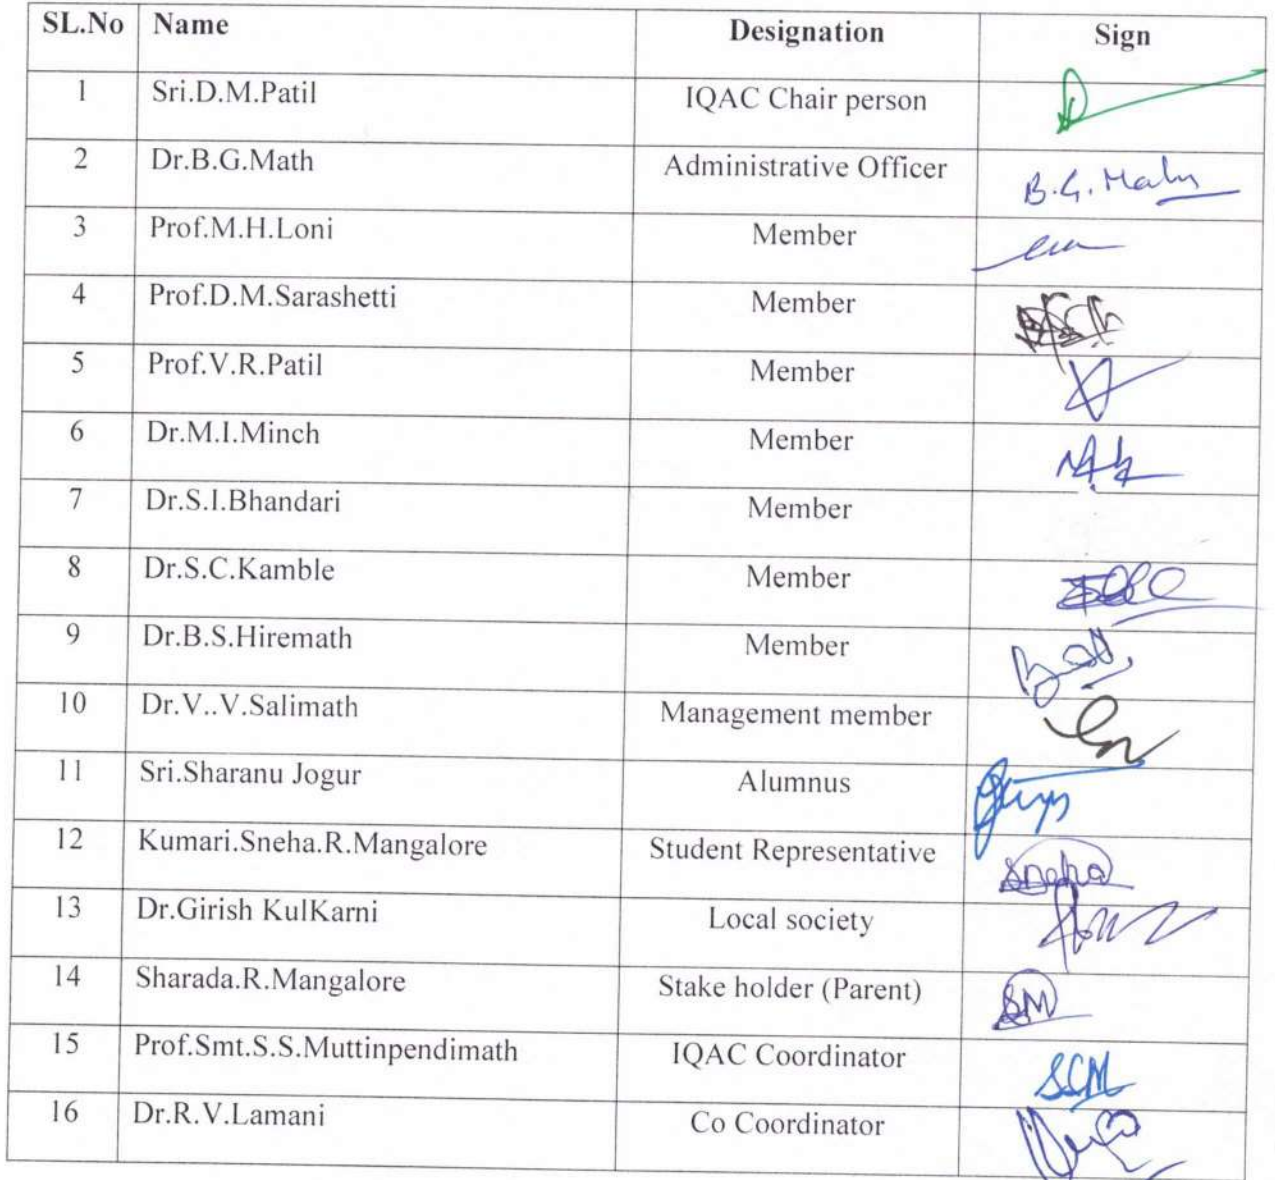 SL.No Name Designation Sign
1 Sri.D.M.Patil IQAC Chair person
2 Dr.B.G.Math Administrative Officer B.G.Math
3 Prof.M.H.Loni Member
4 Prof.D.M.Sarashetti Member
5 Prof.V.R.Patil Member
6 Dr.M.I.Minch Member
7 Dr.S.I.Bhandari Member
8 Dr.S.C.Kamble Member
9 Dr.B.S.Hiremath Member
10 Dr.V..V.Salimath Management member
11 Sri.Sharanu Jogur Alumnus
12 Kumari.Sneha.R.Mangalore Student Representative Sneha
13 Dr.Girish KulKarni Local society
14 Sharada.R.Mangalore Stake holder (Parent) SM
15 Prof.Smt.S.S.Muttinpendimath IQAC Coordinator
16 Dr.R.V.Lamani Co Coordinator